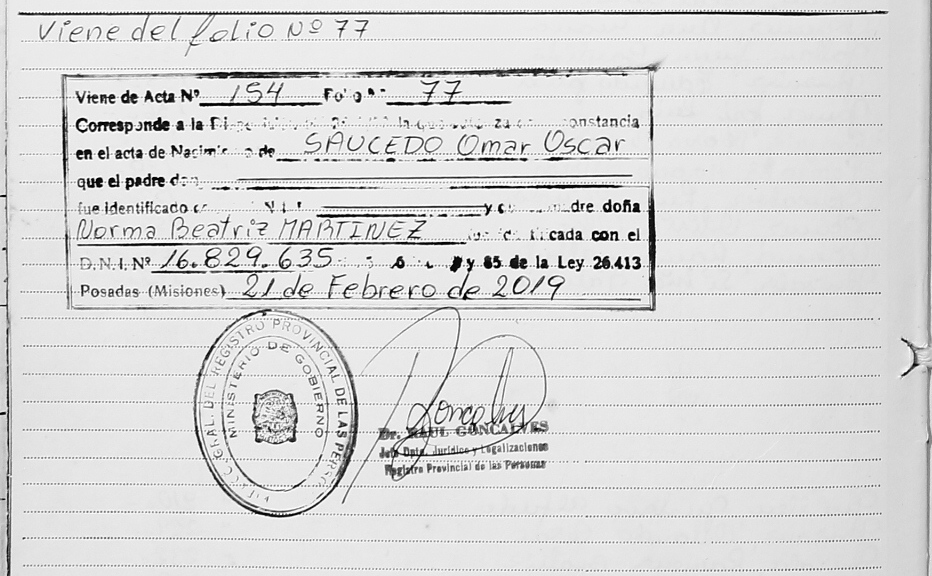 Viene del folio Nº 77
Viene de Acta Nº 154 Folio Nº 77
Corresponde a la constancia
en el acta de Nacimiento de SAUCEDO Omar Oscar
que el padre don
fue identificado y doña
Norma Beatriz MARTINEZ con el
D.N.I. Nº 16.829.635 y 85 de la Ley 26.413
Posadas (Misiones) 21 de Febrero de 2019
GRAL. DEL REGISTRO PROVINCIAL DE LAS PERSO
MINISTERIO DE GOBIERNO
Dr. RAUL GONCALVES
Jefe Dpto. Jurídico y Legalizaciones
Registro Provincial de las Personas